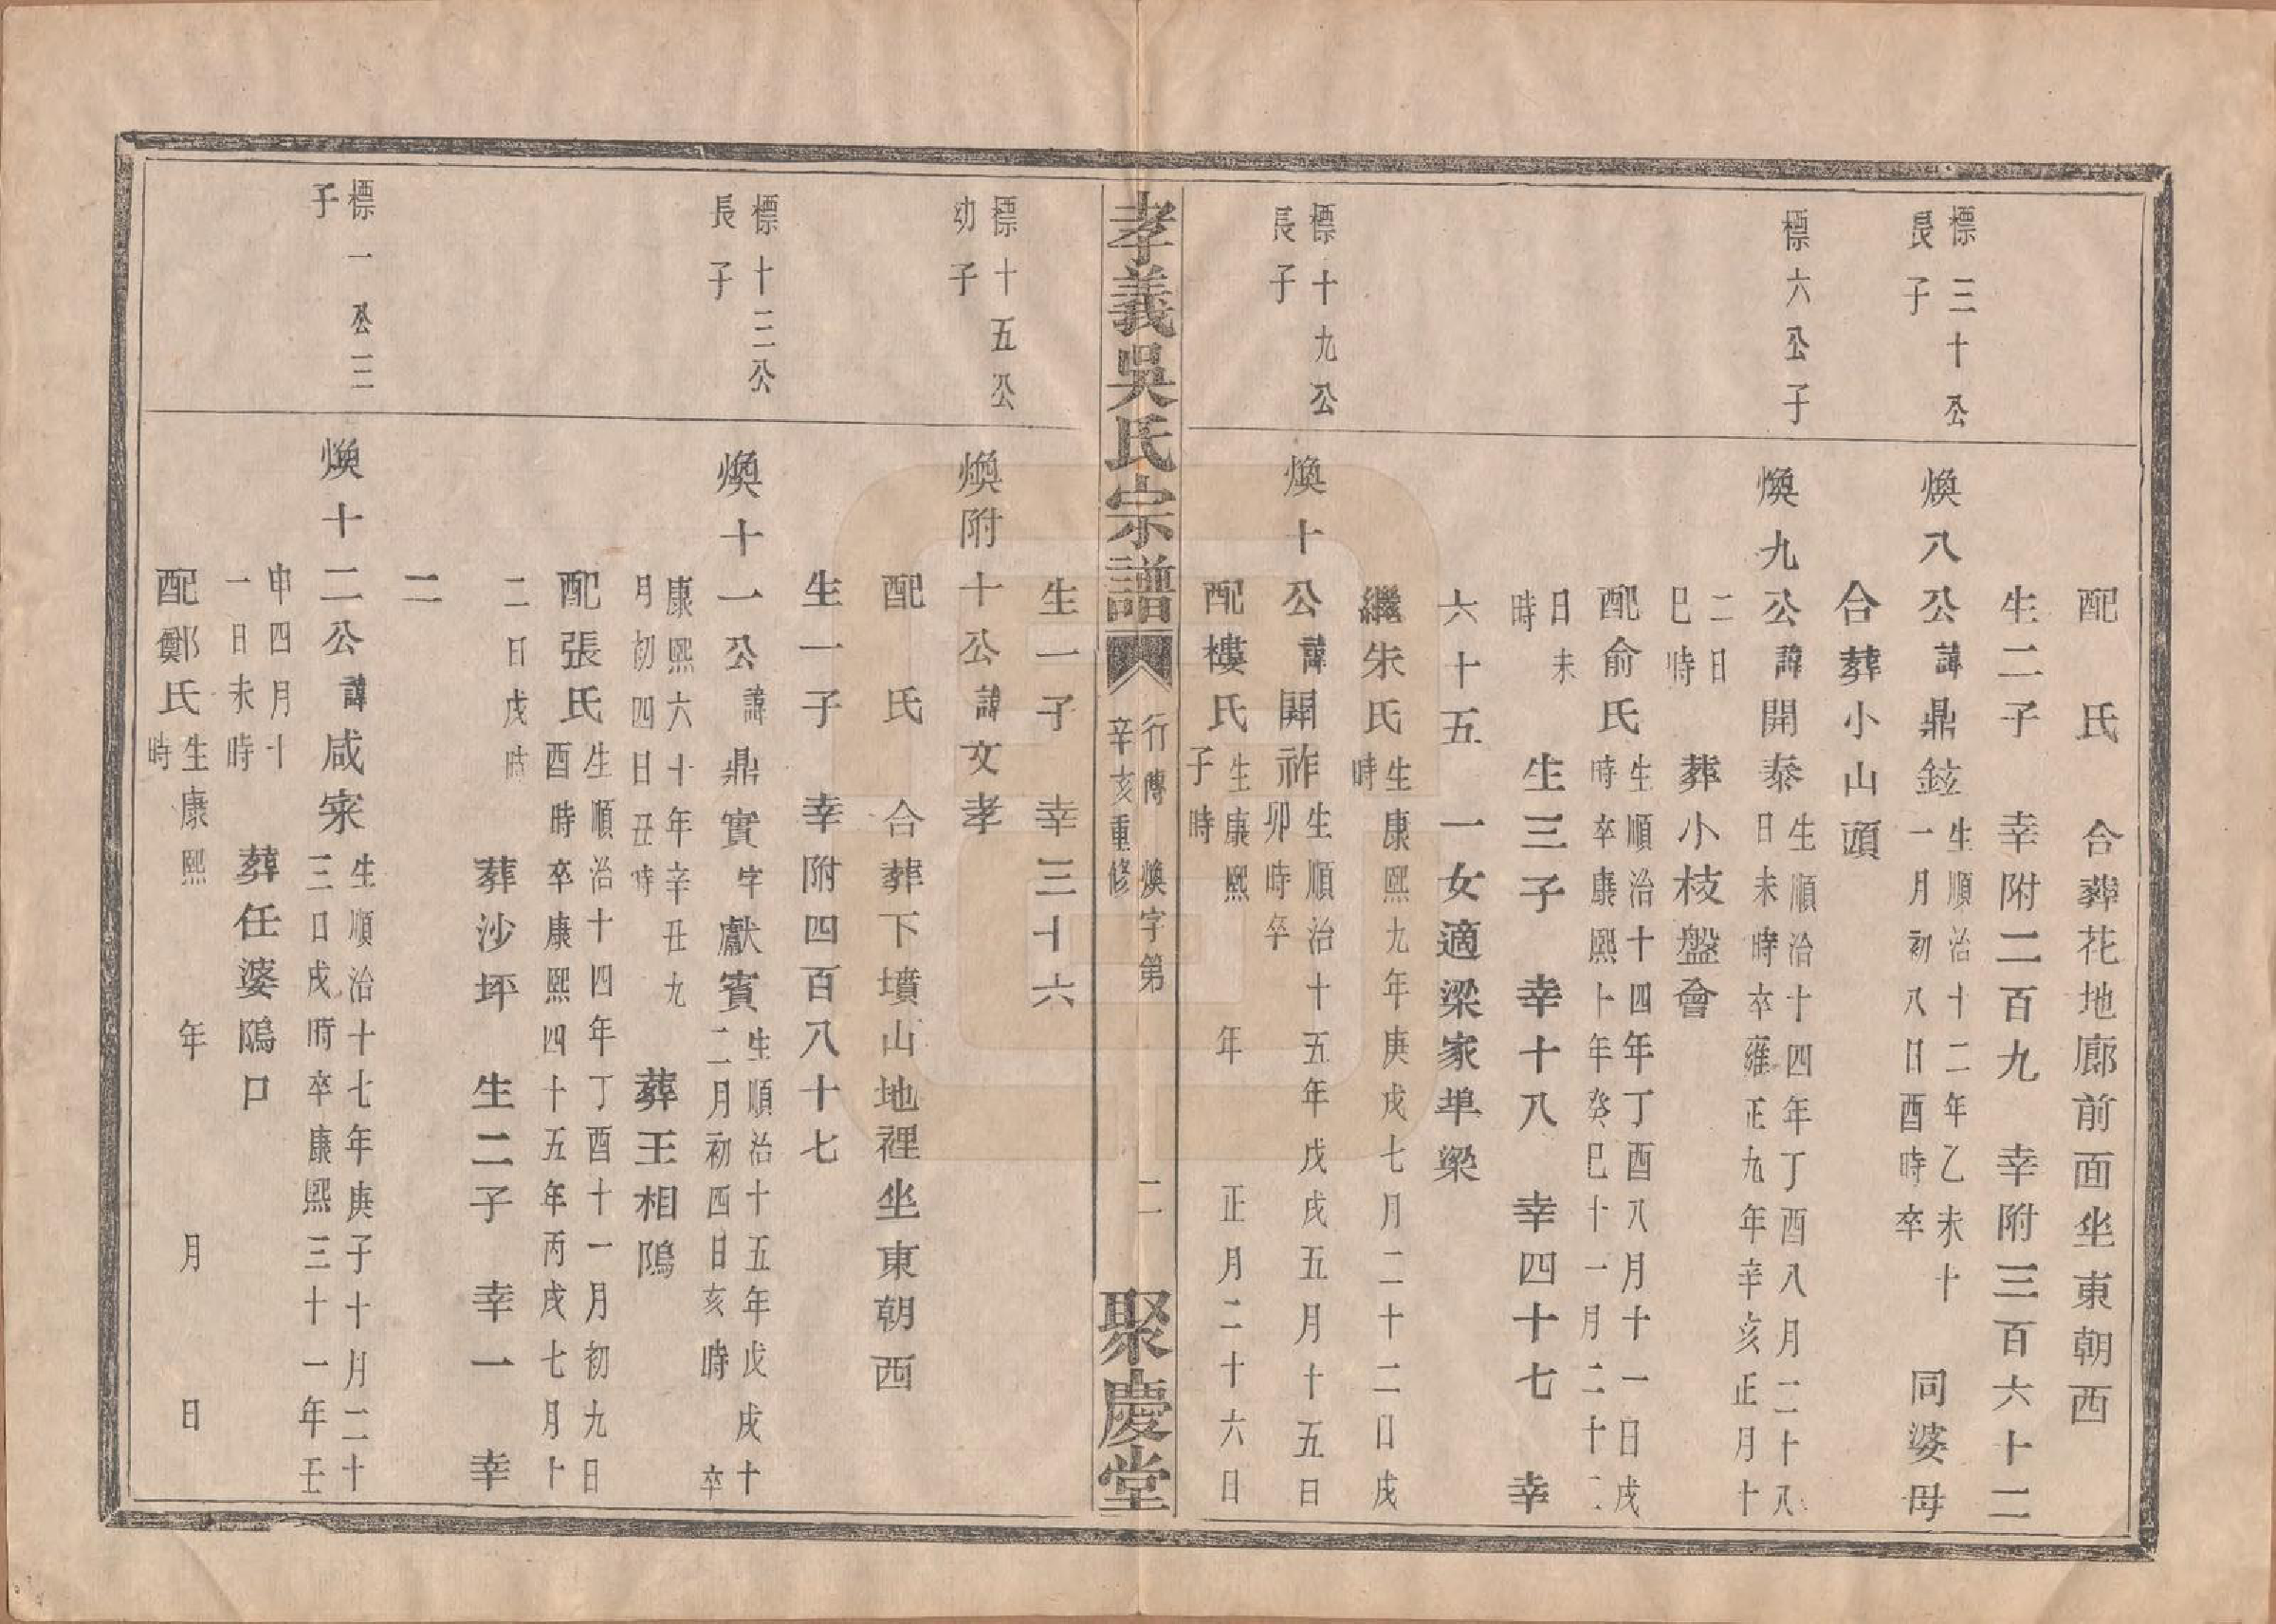 配　氏　合葬花地廊前面坐東朝西
生二子　幸附二百九　幸附三百六十二
標三十公
長子
煥八公諱鼎鉉
生順治十二年乙未十
一月初八日酉時卒
同婆母
合葬小山頭
標六公子
煥九公諱開泰
生順治十四年丁酉八月二十八
日未時卒雍正九年辛亥正月十
二日
巳時
葬小枝盤會
配俞氏
生順治十四年丁酉八月十一日戌
時卒康熙卜年癸巳十一月二十二
日未
時
生三子　幸十八　幸四十七　幸
六十五　一女適梁家埠梁
繼朱氏
生康熙九年庚戌七月二十二日戌
時
標十九公
長子
煥十公諱開祚
生順治十五年戊戌五月十五日
卯時卒
配樓氏
生康熙　年　正月二十六日
子時
孝義吳氏宗譜
行傳　煥字第　二
辛亥重修
聚慶堂
生一子　幸三十六
標十五公
幼子
煥附十公諱文孝
配　氏　合葬下墳山地裡坐東朝西
生一子　幸附四百八十七
標十三公
長子
煥十一公諱鼎實字獻賓
生順治十五年戊戌十
二月初四日亥時　卒
康熙六十年辛丑九
月初四日丑時
葬王相隖
配張氏
生順治十四年丁酉十一月初九日
酉時卒康熙四十五年丙戌七月卜
二日戌時
葬沙坪　生二子　幸一　幸
二
標一公三
子
煥十二公諱咸宷
生順治十七年庚子十月二十
三日戌時卒康熙三十一年壬
申四月十
一日未時
葬任婆隖口
配鄭氏
生康熙　年　月　日
時